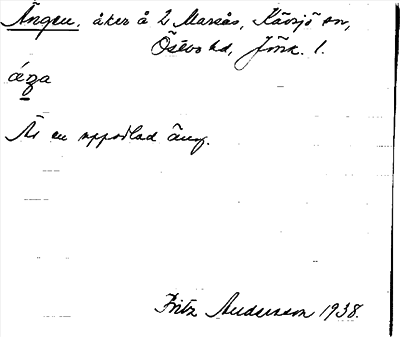 Ängen, åker å 2 Marsås, Kävsjö sn,
Östbo hd, Jönk. l.
áŋa
Är en uppodlad äng.
Fritz Andersson 1938.